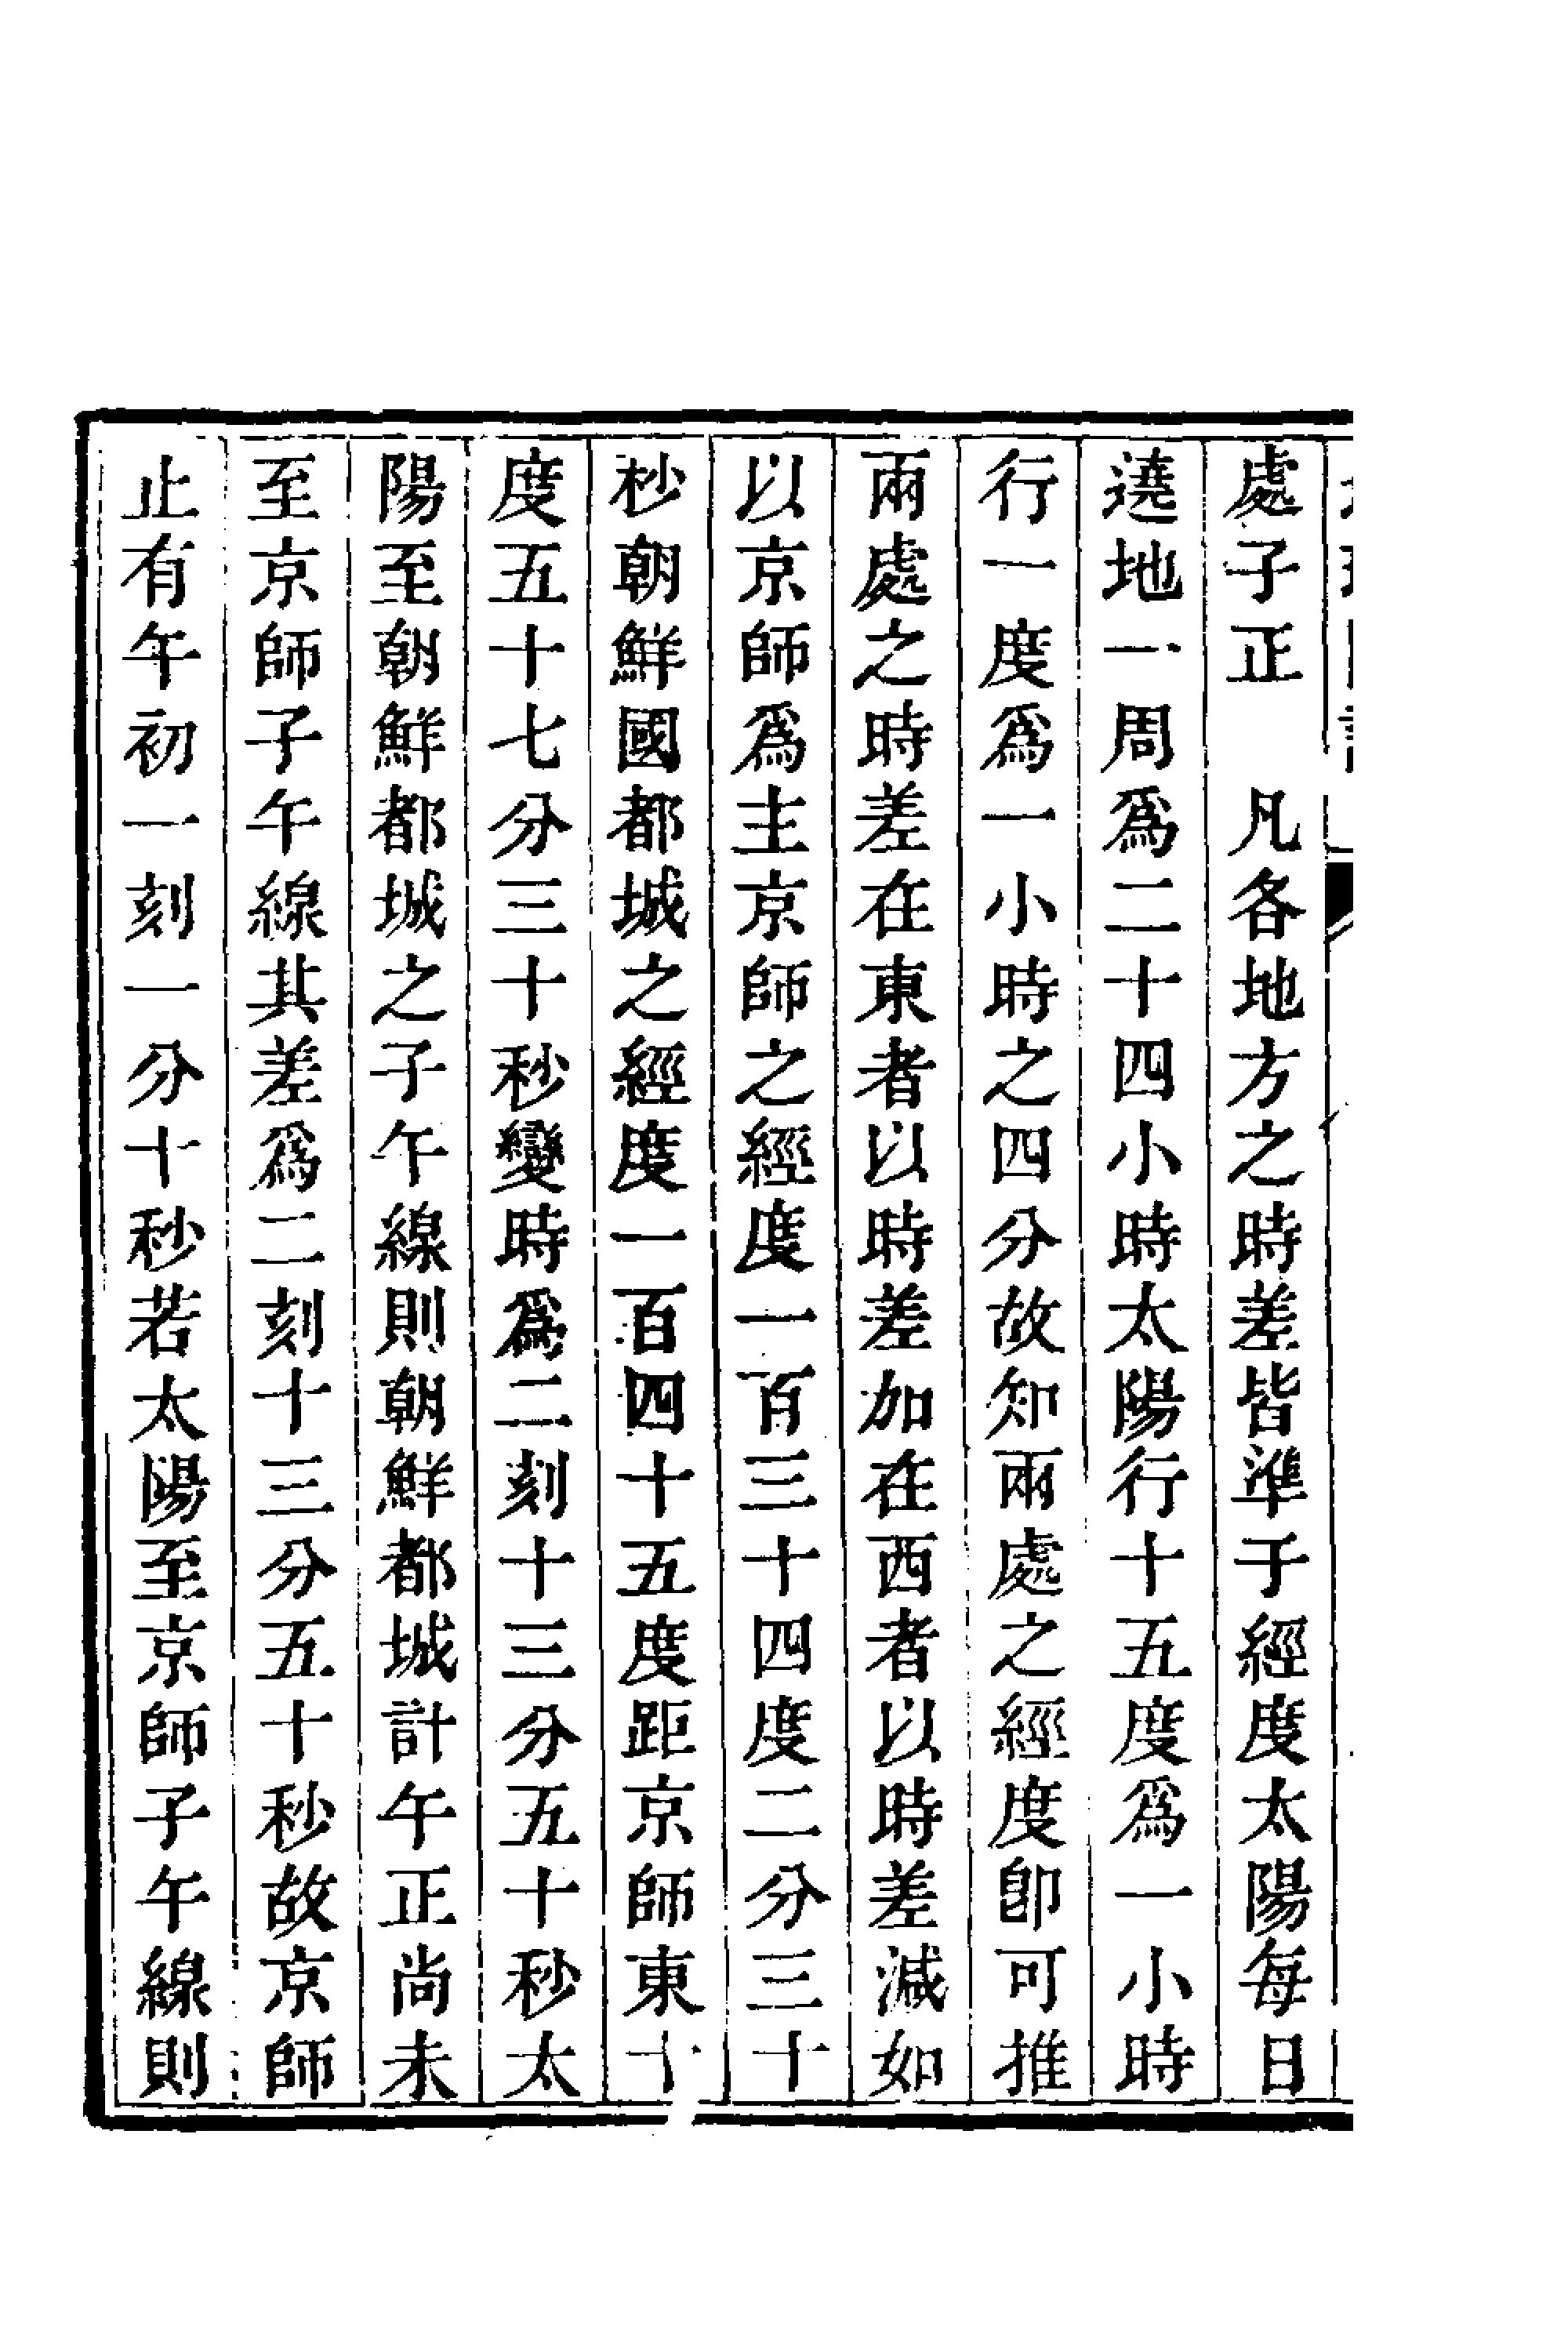 處子正　凡各地方之時差皆準于經度太陽每日
遶地一周爲二十四小時太陽行十五度爲一小時
行一度爲一小時之四分故知兩處之經度卽可推
兩處之時差在東者以時差加在西者以時差減如
以京師爲主京師之經度一百三十四度二分三十
秒朝鮮國都城之經度一百四十五度距京師東十
度五十七分三十秒變時爲二刻十三分五十秒太
陽至朝鮮都城之子午線則朝鮮都城計午正尚未
至京師子午線其差爲二刻十三分五十秒故京師
止有午初一刻一分十秒若太陽至京師子午線則